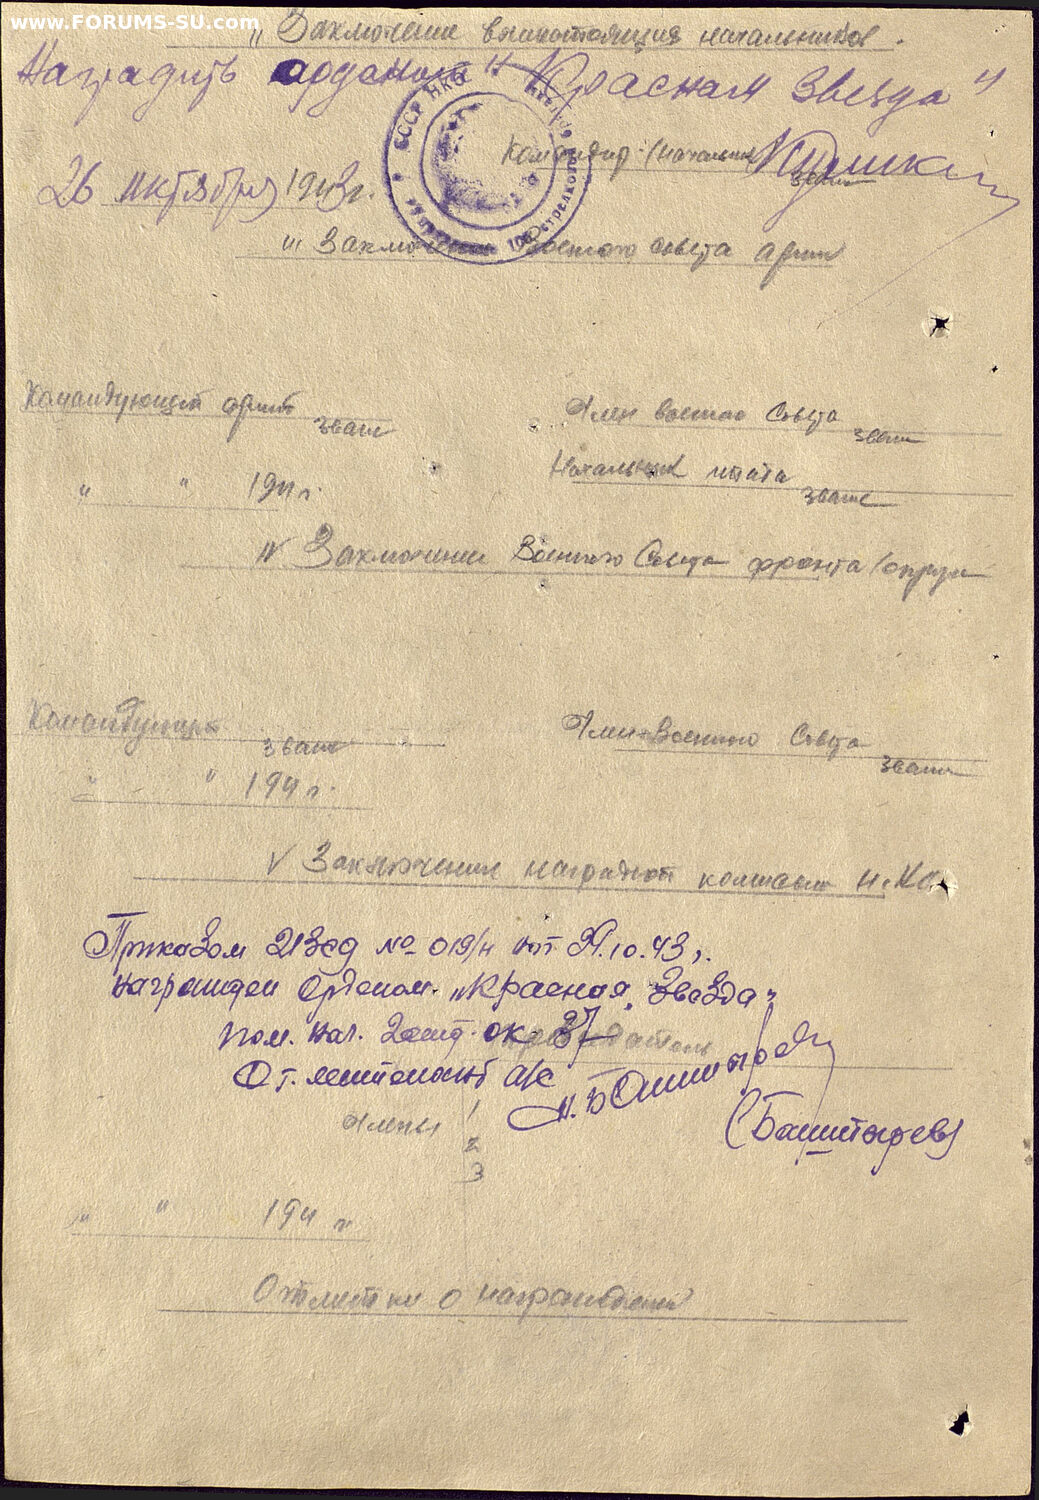 www.FORUMS-SU.com
" Заключение вышестоящих начальников.
Наградить орденом "Красная Звезда"
СССР НКО
Командир (начальник)
звание
26 октября 1943 г.
III Заключение Военного Совета армии
Командующий армией
звание
Член Военного Совета
звание
Начальник штаба
звание
" " 194 г.
IV Заключение Военного Совета фронта /округа
Командующий
звание
Член Военного Совета
звание
" " 194 г.
V Заключение наградной комиссии НКО
Приказом 213 сд № 019/н от 31.10.43 г.
награжден Орденом "Красная Звезда"
Пом. нач.
Председатель
Ст. лейтенант а/с
Члены 1
2
3
" " 194 г.
Отметки о награждении